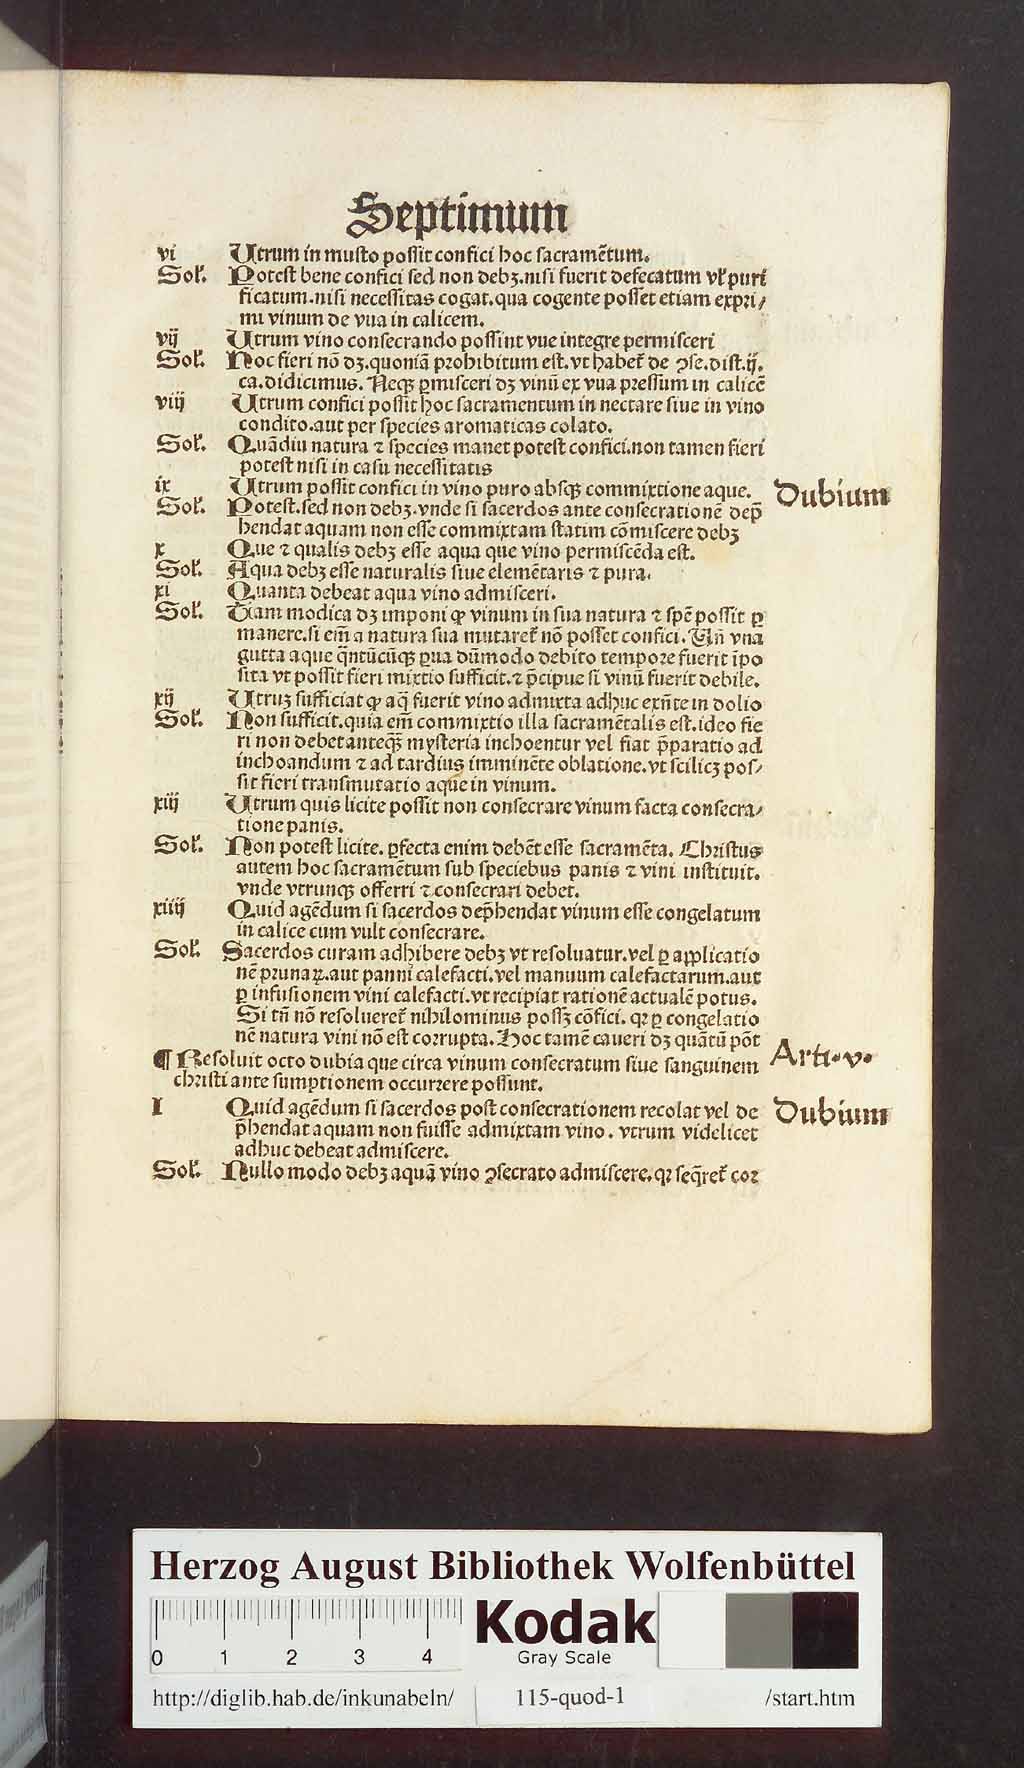 Septimum
vi Utrum in musto possit confici hoc sacramētum.
Sol'. Potest bene confici sed non debꝫ.nisi fuerit defecatum vl' puri
ficatum.nisi necessitas cogat.qua cogente posset etiam expri/
mi vinum de vua in calicem.
vij Utrum vino consecrando possint vue integre permisceri
Sol'. Hoc fieri nō dꝫ.quoniā prohibitum est.vt habet' de ꝯse.dist.ij.
ca.didicimus. Neqꝫ ꝑmisceri dꝫ vinū ex vua pressum in calicē
viij Utrum confici possit hoc sacramentum in nectare siue in vino
condito.aut per species aromaticas colato.
Sol'. Quādiu natura ⁊ species manet potest confici.non tamen fieri
potest nisi in casu necessitatis
ix Utrum possit confici in vino puro absqꝫ commixtione aque. Dubium
Sol'. Potest.sed non debꝫ.vnde si sacerdos ante consecrationē dep̄
hendat aquam non esse commixtam statim cōmiscere debꝫ
x Que ⁊ qualis debꝫ esse aqua que vino permiscēda est.
Sol'. Aqua debꝫ esse naturalis siue elemētaris ⁊ pura.
xi Quanta debeat aqua vino admisceri.
Sol'. Tam modica dꝫ imponi ꝙ vinum in sua natura ⁊ spē possit ꝑ
manere.si em̄ a natura sua mutaret' nō posset confici. Un̄ vna
gutta aque q̄ntūcūqꝫ ꝑua dūmodo debito tempore fuerit īpo
sita vt possit fieri mixtio sufficit.⁊ p̄cipue si vinū fuerit debile.
xij Utruꝫ sufficiat ꝙ aq̄ fuerit vino admixta adhuc exn̄te in dolio
Sol'. Non sufficit.quia em̄ commixtio illa sacramētalis est.ideo fie
ri non debet anteqꝫ mysteria inchoentur vel fiat p̄paratio ad
inchoandum ⁊ ad tardius imminēte oblatione.vt scilicꝫ pos/
sit fieri transmutatio aque in vinum.
xiij Utrum quis licite possit non consecrare vinum facta consecra/
tione panis.
Sol'. Non potest licite. ꝑfecta enim debēt esse sacramēta. Christus
autem hoc sacramētum sub speciebus panis ⁊ vini instituit.
vnde vtrunqꝫ offerri ⁊ consecrari debet.
xiiij Quid agēdum si sacerdos dep̄hendat vinum esse congelatum
in calice cum vult consecrare.
Sol'. Sacerdos curam adhibere debꝫ vt resoluatur.vel ꝑ applicatio
nē prunaꝝ.aut panni calefacti.vel manuum calefactarum.aut
ꝑ infusionem vini calefacti.vt recipiat rationē actualē potus.
Si tn̄ nō resolueret' nihilominus possꝫ cōfici. qꝛ ꝑ congelatio
nē natura vini nō est corrupta. Hoc tamē caueri dꝫ quātū pōt
¶ Resoluit octo dubia que circa vinum consecratum siue sanguinem Arti.v.
christi ante sumptionem occurrere possunt.
I Quid agēdum si sacerdos post consecrationem recolat vel de Dubium
p̄hendat aquam non fuisse admixtam vino. vtrum videlicet
adhuc debeat admiscere.
Sol'. Nullo modo debꝫ aquā vino ꝯsecrato admiscere.qꝛ seq̄ret' cor
Herzog August Bibliothek Wolfenbüttel
0 1 2 3 4
Kodak
Gray Scale
http://diglib.hab.de/inkunabeln/ 115-quod-1 /start.htm